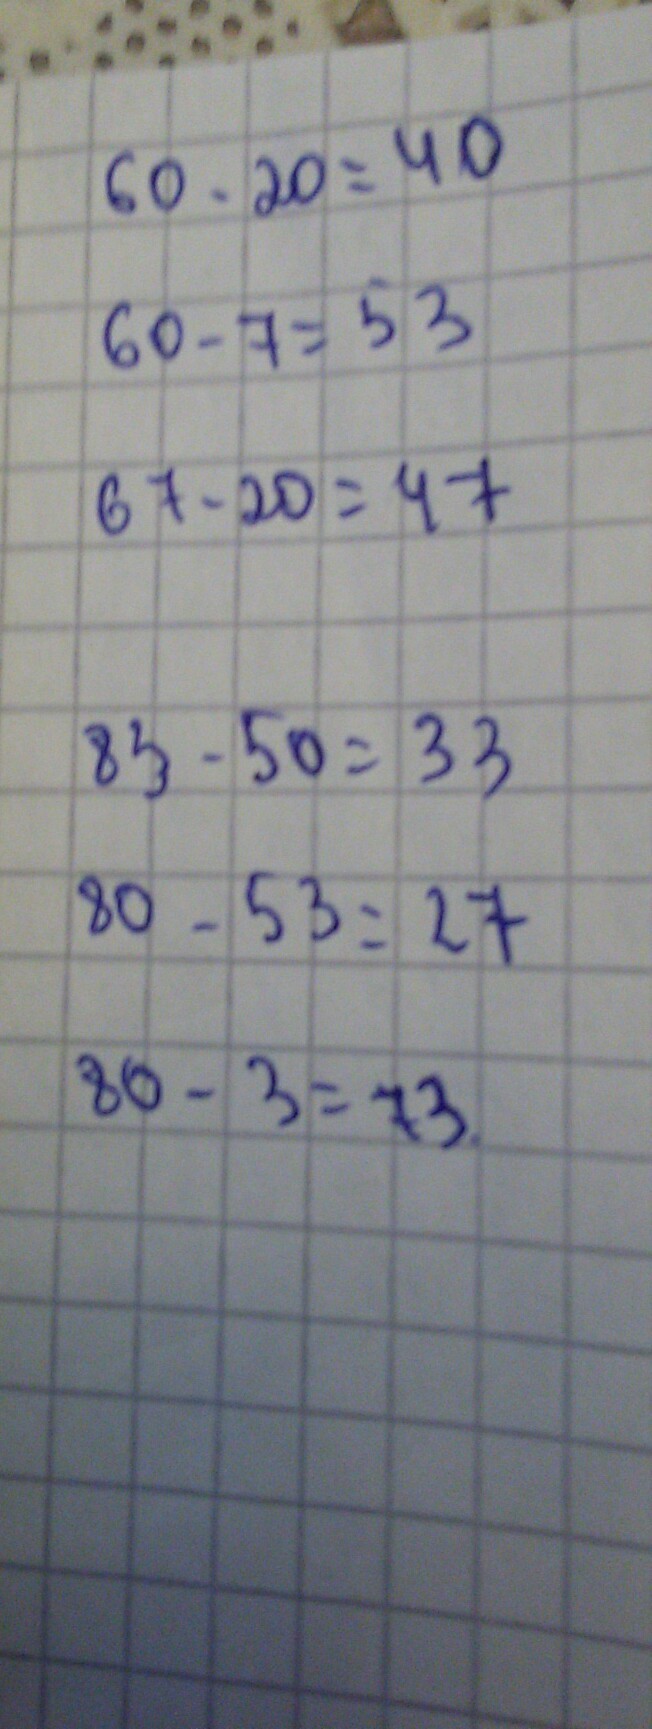 60 - 20 = 40
60 - 7 = 53
67 - 20 = 47
83 - 50 = 33
80 - 53 = 27
80 - 3 = 73.